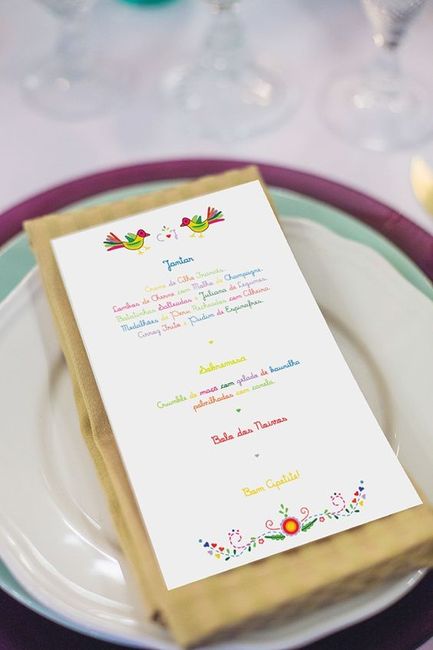 C J
Jantar
Creme de Alho Francês.
Lombos de Cherne com Molho de Champagne.
Batatinhas Salteadas e Juliana de Legumes.
Medalhões de Peru Recheados com Alheira.
Arroz Frito e Pudim de Espinafres.
Sobremesa
Crumble de maçã com gelado de baunilha
polvilhados com canela.
Bolo dos Noivos
Bom Apetite!